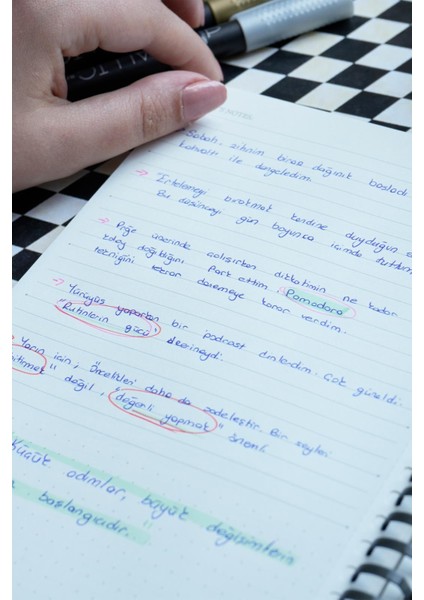 NOTES
Sabah, zihnim biraz dağınık başladı
kahvaltı ile dengeledim.
→ Ertelemeyi bırakmak kendine duyduğun
Bu düşünceyi gün boyunca içimde tuttum
→ Proje üzerinde çalışırken dikkatimin ne kadar
kolay dağıldığını fark ettim. (Pomodoro)
tekniğini tekrar denemeye karar verdim.
→ Yürüyüş yaparken bir podcast dinledim. Çok güzeldi.
"Rutinlerin gücü" üzerineydi.
Yarın için, öncelikleri daha da sadeleştir. Bir şeyleri
bitirmek" değil, "değerli yapmak" önemli.
Küçük adımlar, büyük değişimlerin
başlangıcıdır."